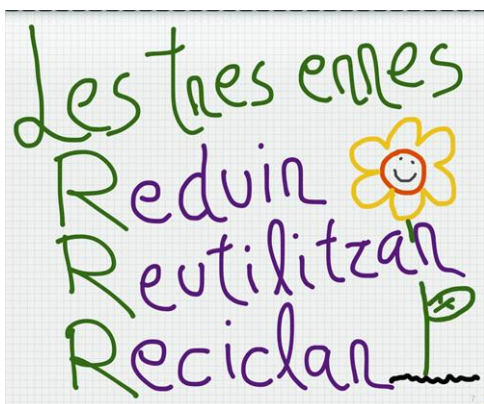 Les tres erres
Reduir
Reutilitzar
Reciclar
7